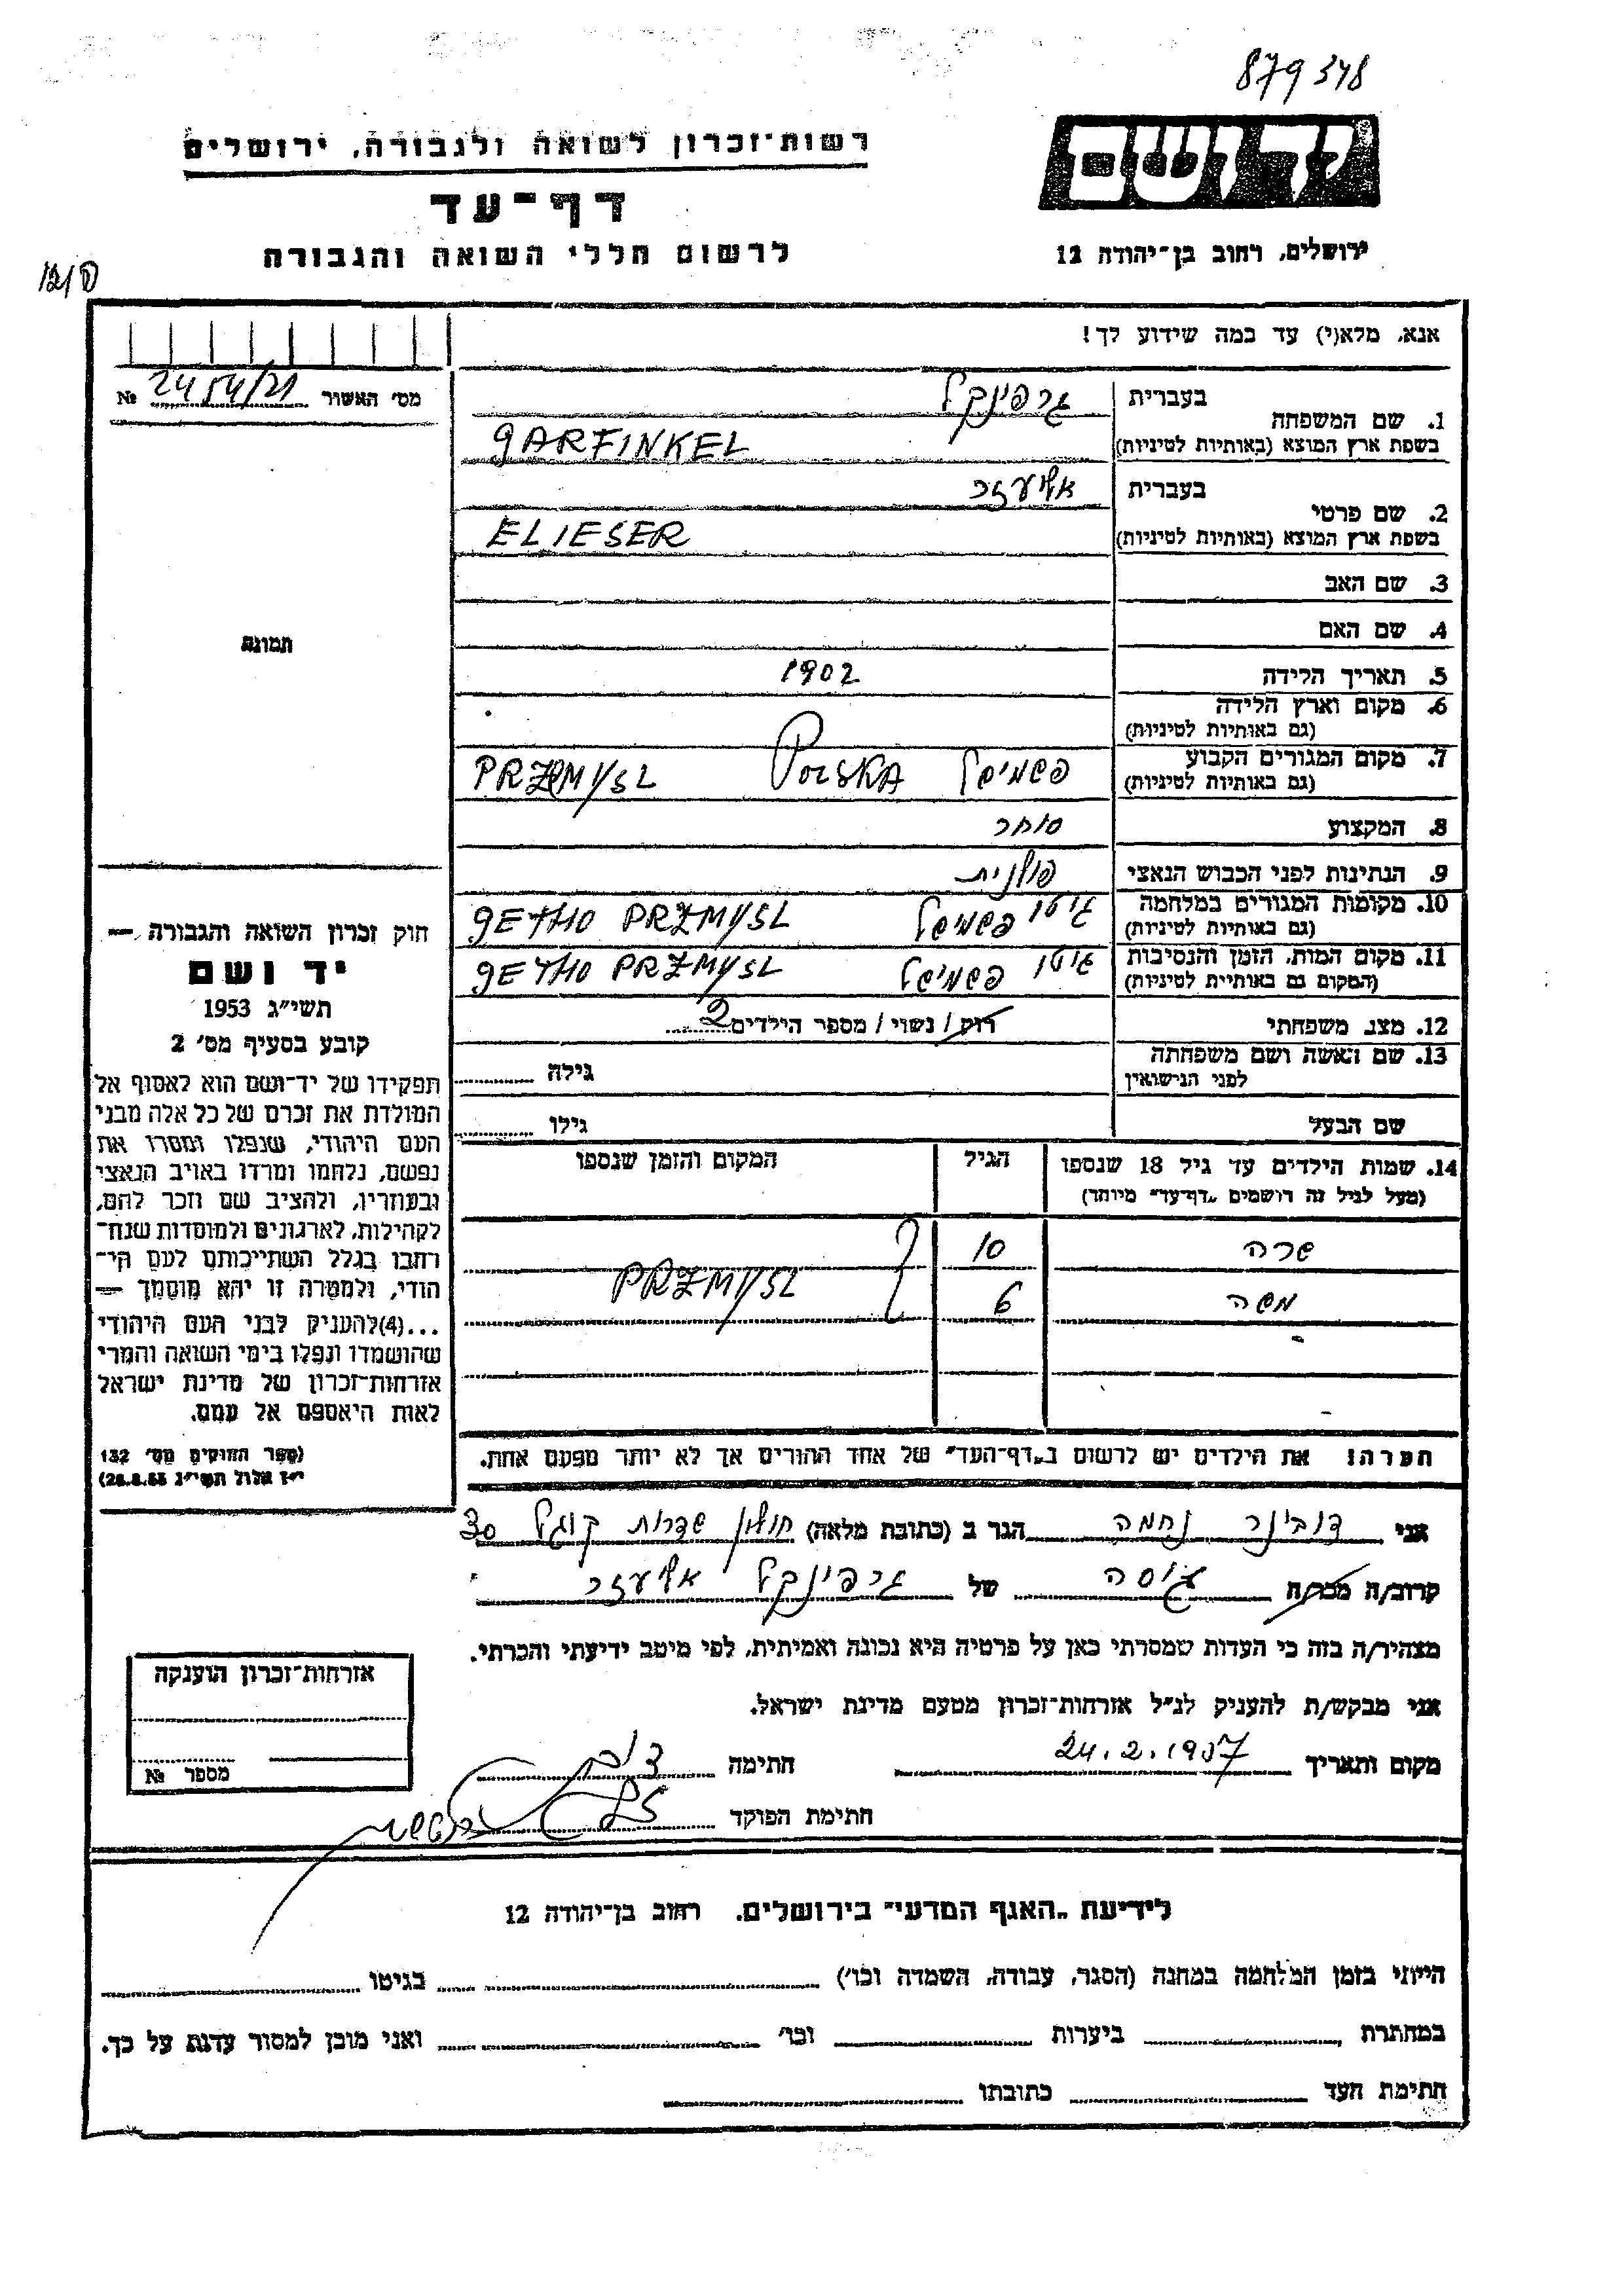 879348
יד ושם
רשות־זכרון לשואה ולגבורה, ירושלים
דף־עד
ירושלים, רחוב בן־יהודה 12
לרשום חללי השואה והגבורה
אנא, מלא(י) עד כמה שידוע לך!
מס' האשור 2454/21 №
1. שם המשפחה
בעברית גרפינקל
בשפת ארץ המוצא (באותיות לטיניות) GARFINKEL
2. שם פרטי
בעברית אליעזר
בשפת ארץ המוצא (באותיות לטיניות) ELIESER
3. שם האב
4. שם האם
תמונה
5. תאריך הלידה 1902
6. מקום וארץ הלידה
(גם באותיות לטיניות)
7. מקום המגורים הקבוע פשמישל POLSKA PRZEMYSL
(גם באותיות לטיניות)
8. המקצוע סוחר
9. הנתינות לפני הכבוש הנאצי פולנית
10. מקומות המגורים במלחמה גיטו פשמישל GETHO PRZMYSL
(גם באותיות לטיניות)
11. מקום המות, הזמן והנסיבות גיטו פשמישל GETHO PRZMYSL
(המקום גם באותיית לטיניות)
12. מצב משפחתי רוק / נשוי / מספר הילדים 2
13. שם האשה ושם משפחתה גילה
לפני הנישואין
שם הבעל גילו
14. שמות הילדים עד גיל 18 שנספו הגיל המקום והזמן שנספו
(מעל לגיל זה רושמים „דף־עד" מיוחד)
שרה 10
PRZMYSL
משה 6
הערה! את הילדים יש לרשום ב„דף־העד" של אחד ההורים אך לא יותר מפעם אחת.
חוק זכרון השואה והגבורה —
יד ושם
תשי"ג 1953
קובע בסעיף מס' 2
תפקידו של יד־ושם הוא לאסוף אל
המולדת את זכרם של כל אלה מבני
העם היהודי, שנפלו ומסרו את
נפשם, נלחמו ומרדו באויב הנאצי
ובעוזריו, ולהציב שם וזכר להם,
לקהילות, לארגונים ולמוסדות שנח־
רחבו בגלל השתייכותם לעם הי־
הודי, ולמטרה זו יהא מוסמך —
...(4)להעניק לבני העם היהודי
שהושמדו ונפלו בימי השואה והמרי
אזרחות־זכרון של מדינת ישראל
לאות היאספם אל עמם.
(ספר החוקים מס' 132
י"ז אלול תשי"ג 28.8.53)
אני דובינר נחמה הגר ב (כתובת מלאה) חולון שדרות קוגל 30
קרוב/ה מכר/ה גיסה של גרפינקל אליעזר
מצהיר/ה בזה כי העדות שמסרתי כאן על פרטיה היא נכונה ואמיתית, לפי מיטב ידיעתי והכרתי.
אני מבקש/ת להעניק לנ"ל אזרחות־זכרון מטעם מדינת ישראל.
מקום ותאריך 24.2.1957 חתימה
חתימת הפוקד
אזרחות־זכרון הוענקה
מספר №
לידיעת „האגף המדעי" בירושלים, רחוב בן־יהודה 12
הייתי בזמן המלחמה במחנה (הסגר, עבודה, השמדה וכו') בגיטו
במחתרת ביערות וכו' ואני מוכן למסור עדות על כך.
חתימת העד כתובתו